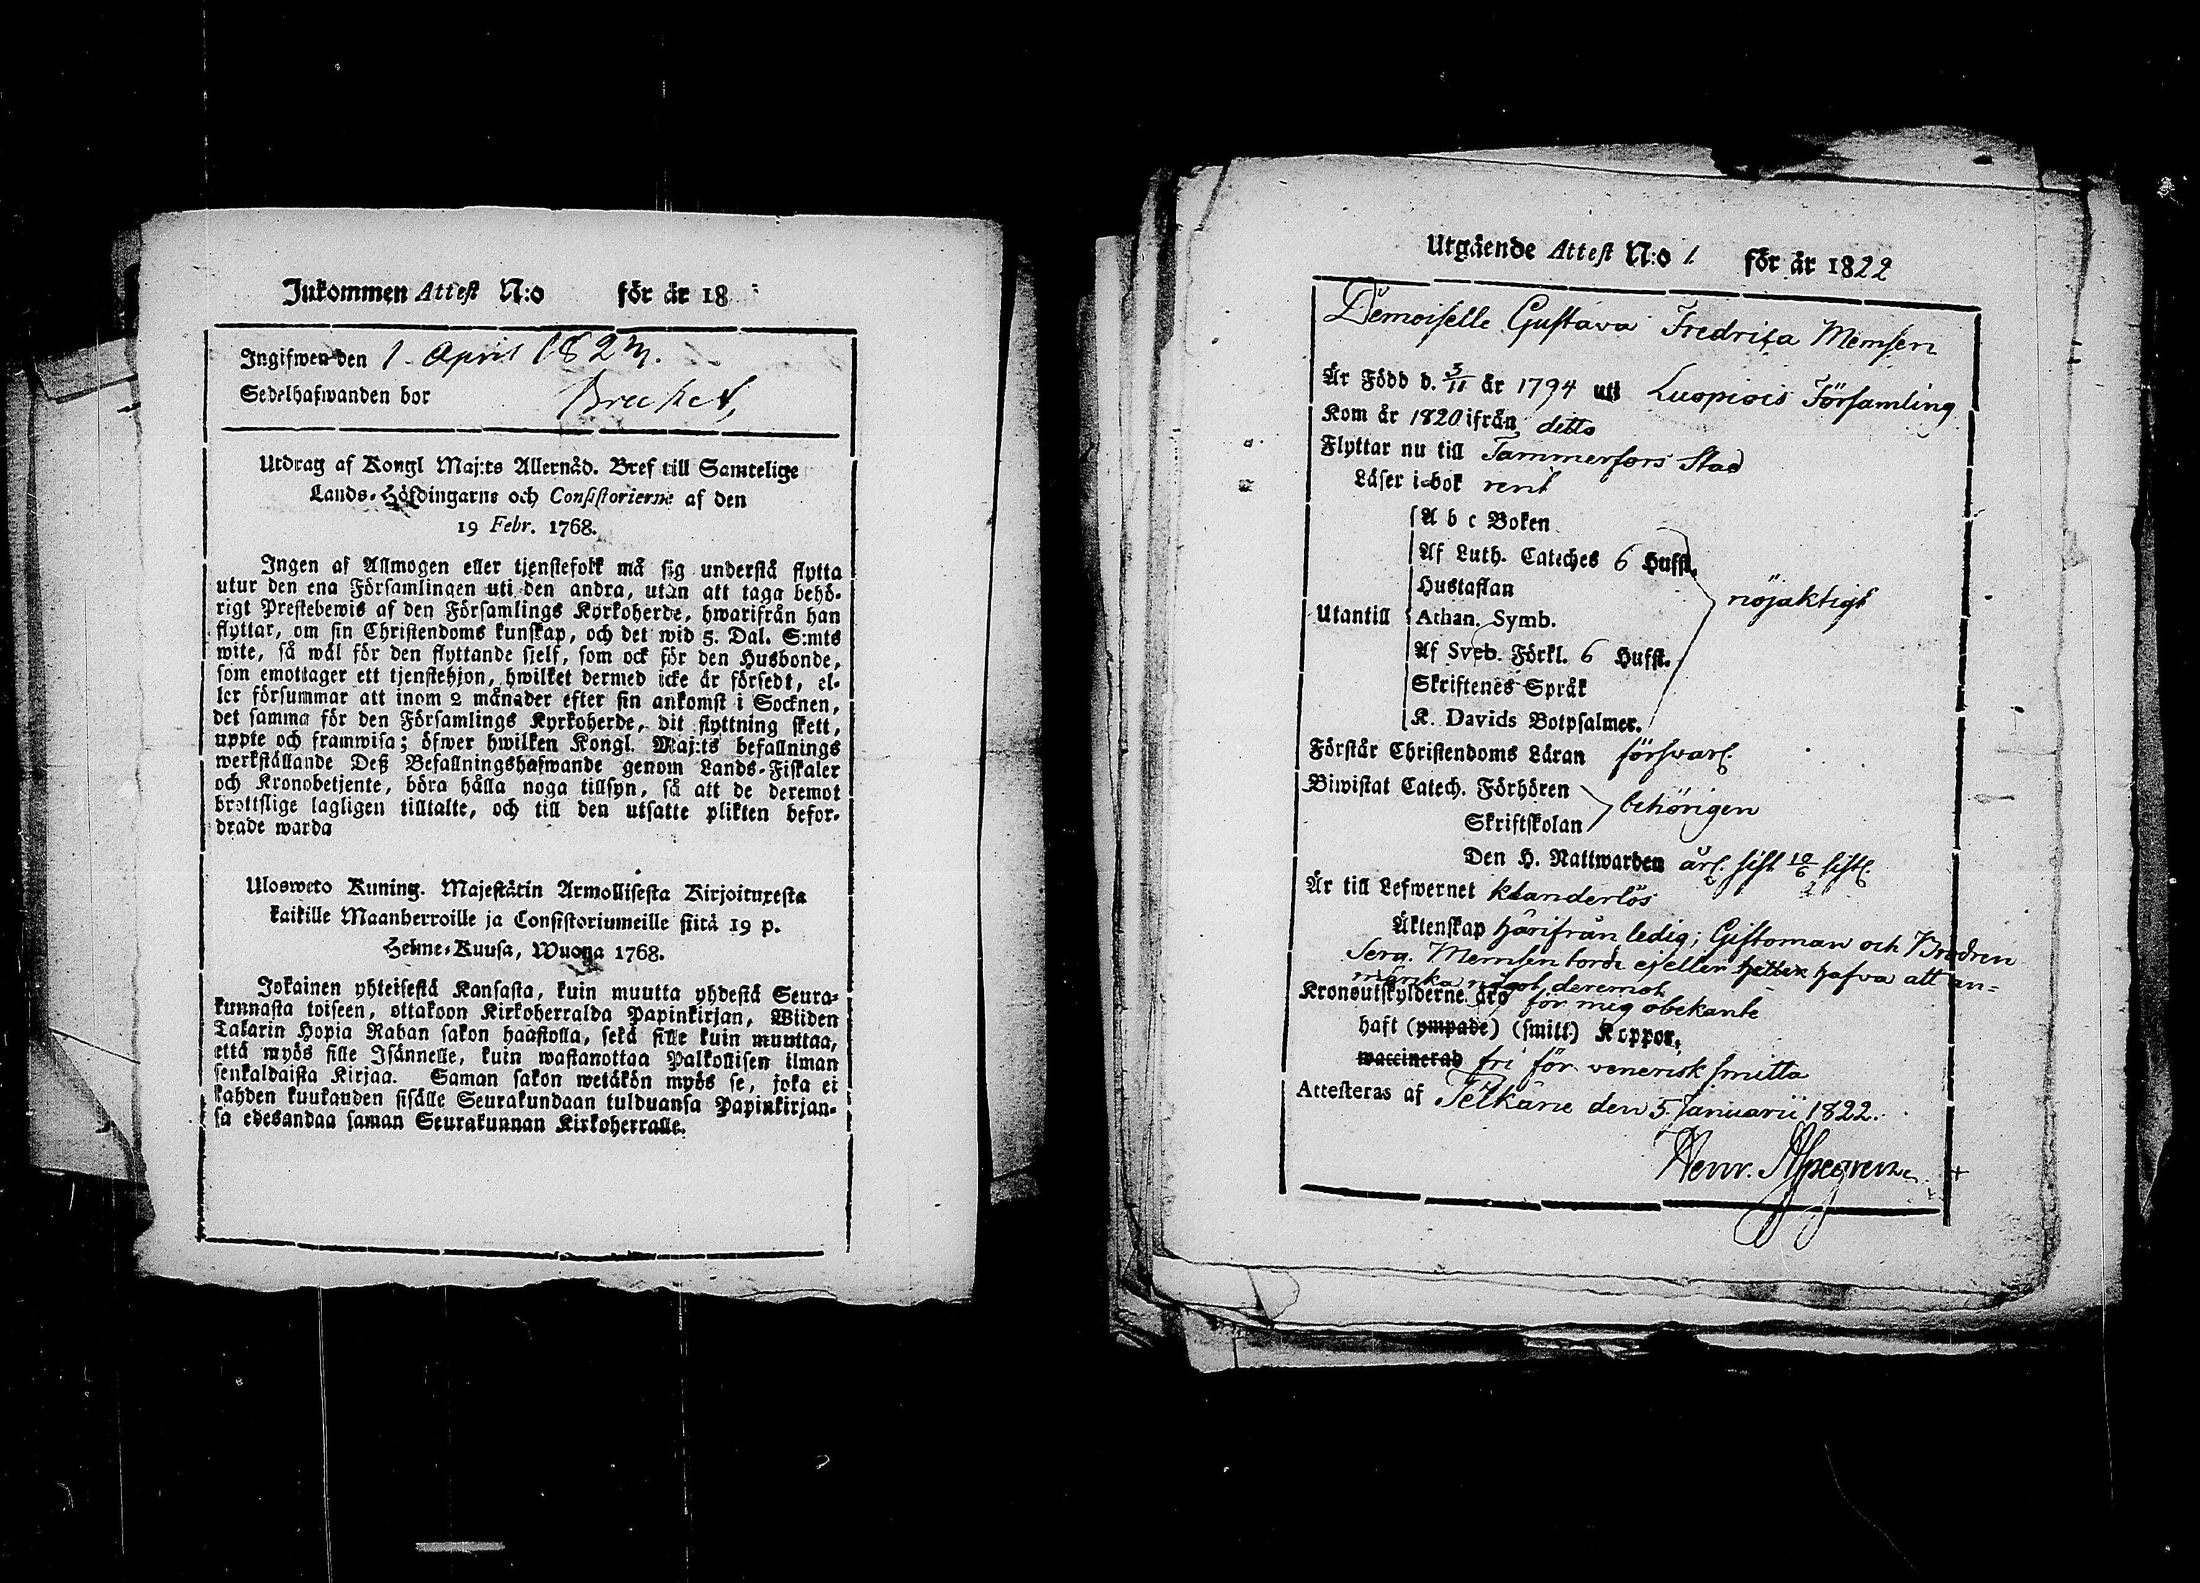 Inkommen Attest N:o för år 18
Ingifwen den 1 April 182
Sedelhafwanden bor
Utdrag af Kongl Maj:ts Allernåd. Bref till Samtelige
Lands-Höfdingarne och Consistorierne af den
19 Febr. 1768.
Ingen af Allmogen eller tjenstefolk må sig understå flytta
utur den ena Församlingen uti den andra, utan att taga behö-
rigt Prestebewis af den Församlings Kyrkoherde, hwarifrån han
flyttar, om sin Christendoms kunskap, och det wid 5. Dal. S:mts
wite, så wäl för den flyttande sjelf, som ock för den Husbonde,
som emottager ett tjenstehjon, hwilket dermed icke är försedt, el-
ler försummar att inom 2 månader efter sin ankomst i Socknen,
det samma för den Församlings Kyrkoherde, dit flyttning skett,
uppte och framwisa; öfwer hwilken Kongl. Maj:ts befallnings
werkställande Deß Befallningshafwande genom Lands-Fiskaler
och Kronobetjente, böra hålla noga tillsyn, så att de deremot
brottslige lagligen tilltalte, och till den utsatte plikten befor-
drade warda
Ulosweto Kuning. Majestätin Armollisesta Kirjoituxesta
kaikille Maanherroille ja Consistoriumeille siitä 19 p.
Helme-Kuusa, Wuonna 1768.
Jokainen yhteisestä Kansasta, kuin muutta yhdestä Seura-
kunnasta toiseen, ottakoon Kirkoherralda Papinkirjan, Wiiden
Talarin Hopia Rahan sakon haastolla, sekä sille kuin muuttaa,
että myös sille Isännelle, kuin wastanottaa Palkollisen ilman
senkaldaista Kirjaa. Saman sakon wetäkön myös se, joka ei
kahden kuukauden sisälle Seurakundaan tulduansa Papinkirjan-
sa edesandaa saman Seurakunnan Kirkoherralle.
Utgående Attest N:o 1. för år 1822
Demoiselle Gustava Fredrica Memsen
Är Född d. 5/11 år 1794 uti Luopiois Församling
Kom år 1820 ifrån ditto
Flyttar nu till Tammerfors Stad
Läser i bok rent
A b c Boken
Af Luth. Cateches 6 Hufst.
Hustaflan
Utantill Athan. Symb. nöjaktigt
Af Sveb. Förkl. 6 Hufst.
Skriftenes Språk
K. Davids Botpsalmer.
Förstår Christendoms Läran försvarl.
Biwistat Catech. Förhören
Skriftskolan behörigen
Den H. Nattwarden årl. sist 10/6 sistl.
Är till Lefwernet klanderlös
Äktenskap härifrån ledig; Giftoman och Brodren
Serg. Memsen torde ejeller heller hafva att an-
märka något deremot
Kronoutskylderne äro för mig obekante
haft (ympade) (smitt) Koppor,
waccinerad fri för venerisk smitta
Attesteras af Pelkäne den 5 Januarii 1822.
Henr.